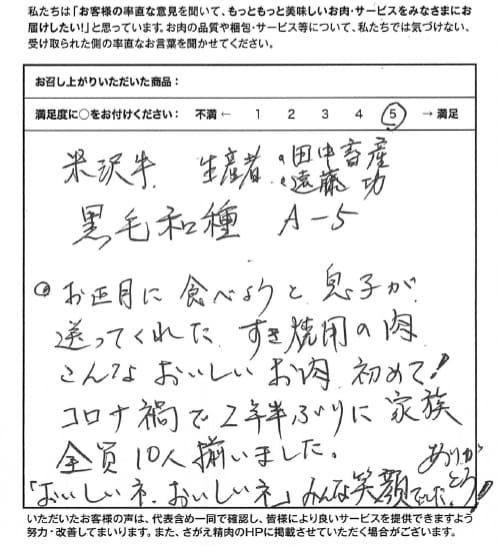 私たちは「お客様の率直な意見を聞いて、もっともっと美味しいお肉・サービスをみなさまにお
届けしたい！」と思っています。お肉の品質や梱包・サービス等について、私たちでは気づけない、
受け取られた側の率直なお言葉を聞かせてください。
お召し上がりいただいた商品：
満足度に○をお付けください： 不満 ← 1 2 3 4 5 → 満足
米沢牛 生産者・田中畜産
・遠藤 功
黒毛和種 A-5
お正月に食べようと息子が
送ってくれた すき焼用の肉
こんなおいしいお肉 初めて!
コロナ禍で2年半ぶりに家族
全員10人揃いました。
「おいしいネ、おいしいネ」みんな笑顔でした。
ありがとう!
いただいたお客様の声は、代表含め一同で確認し、皆様により良いサービスを提供できますよう
努力・改善してまいります。また、さがえ精肉のHPに掲載させていただく場合がございます。